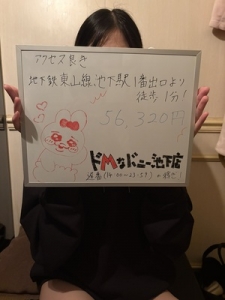 アクセス良き
地下鉄東山線池下駅1番出口より
徒歩1分!
56,320円
ドMなバニー池下店